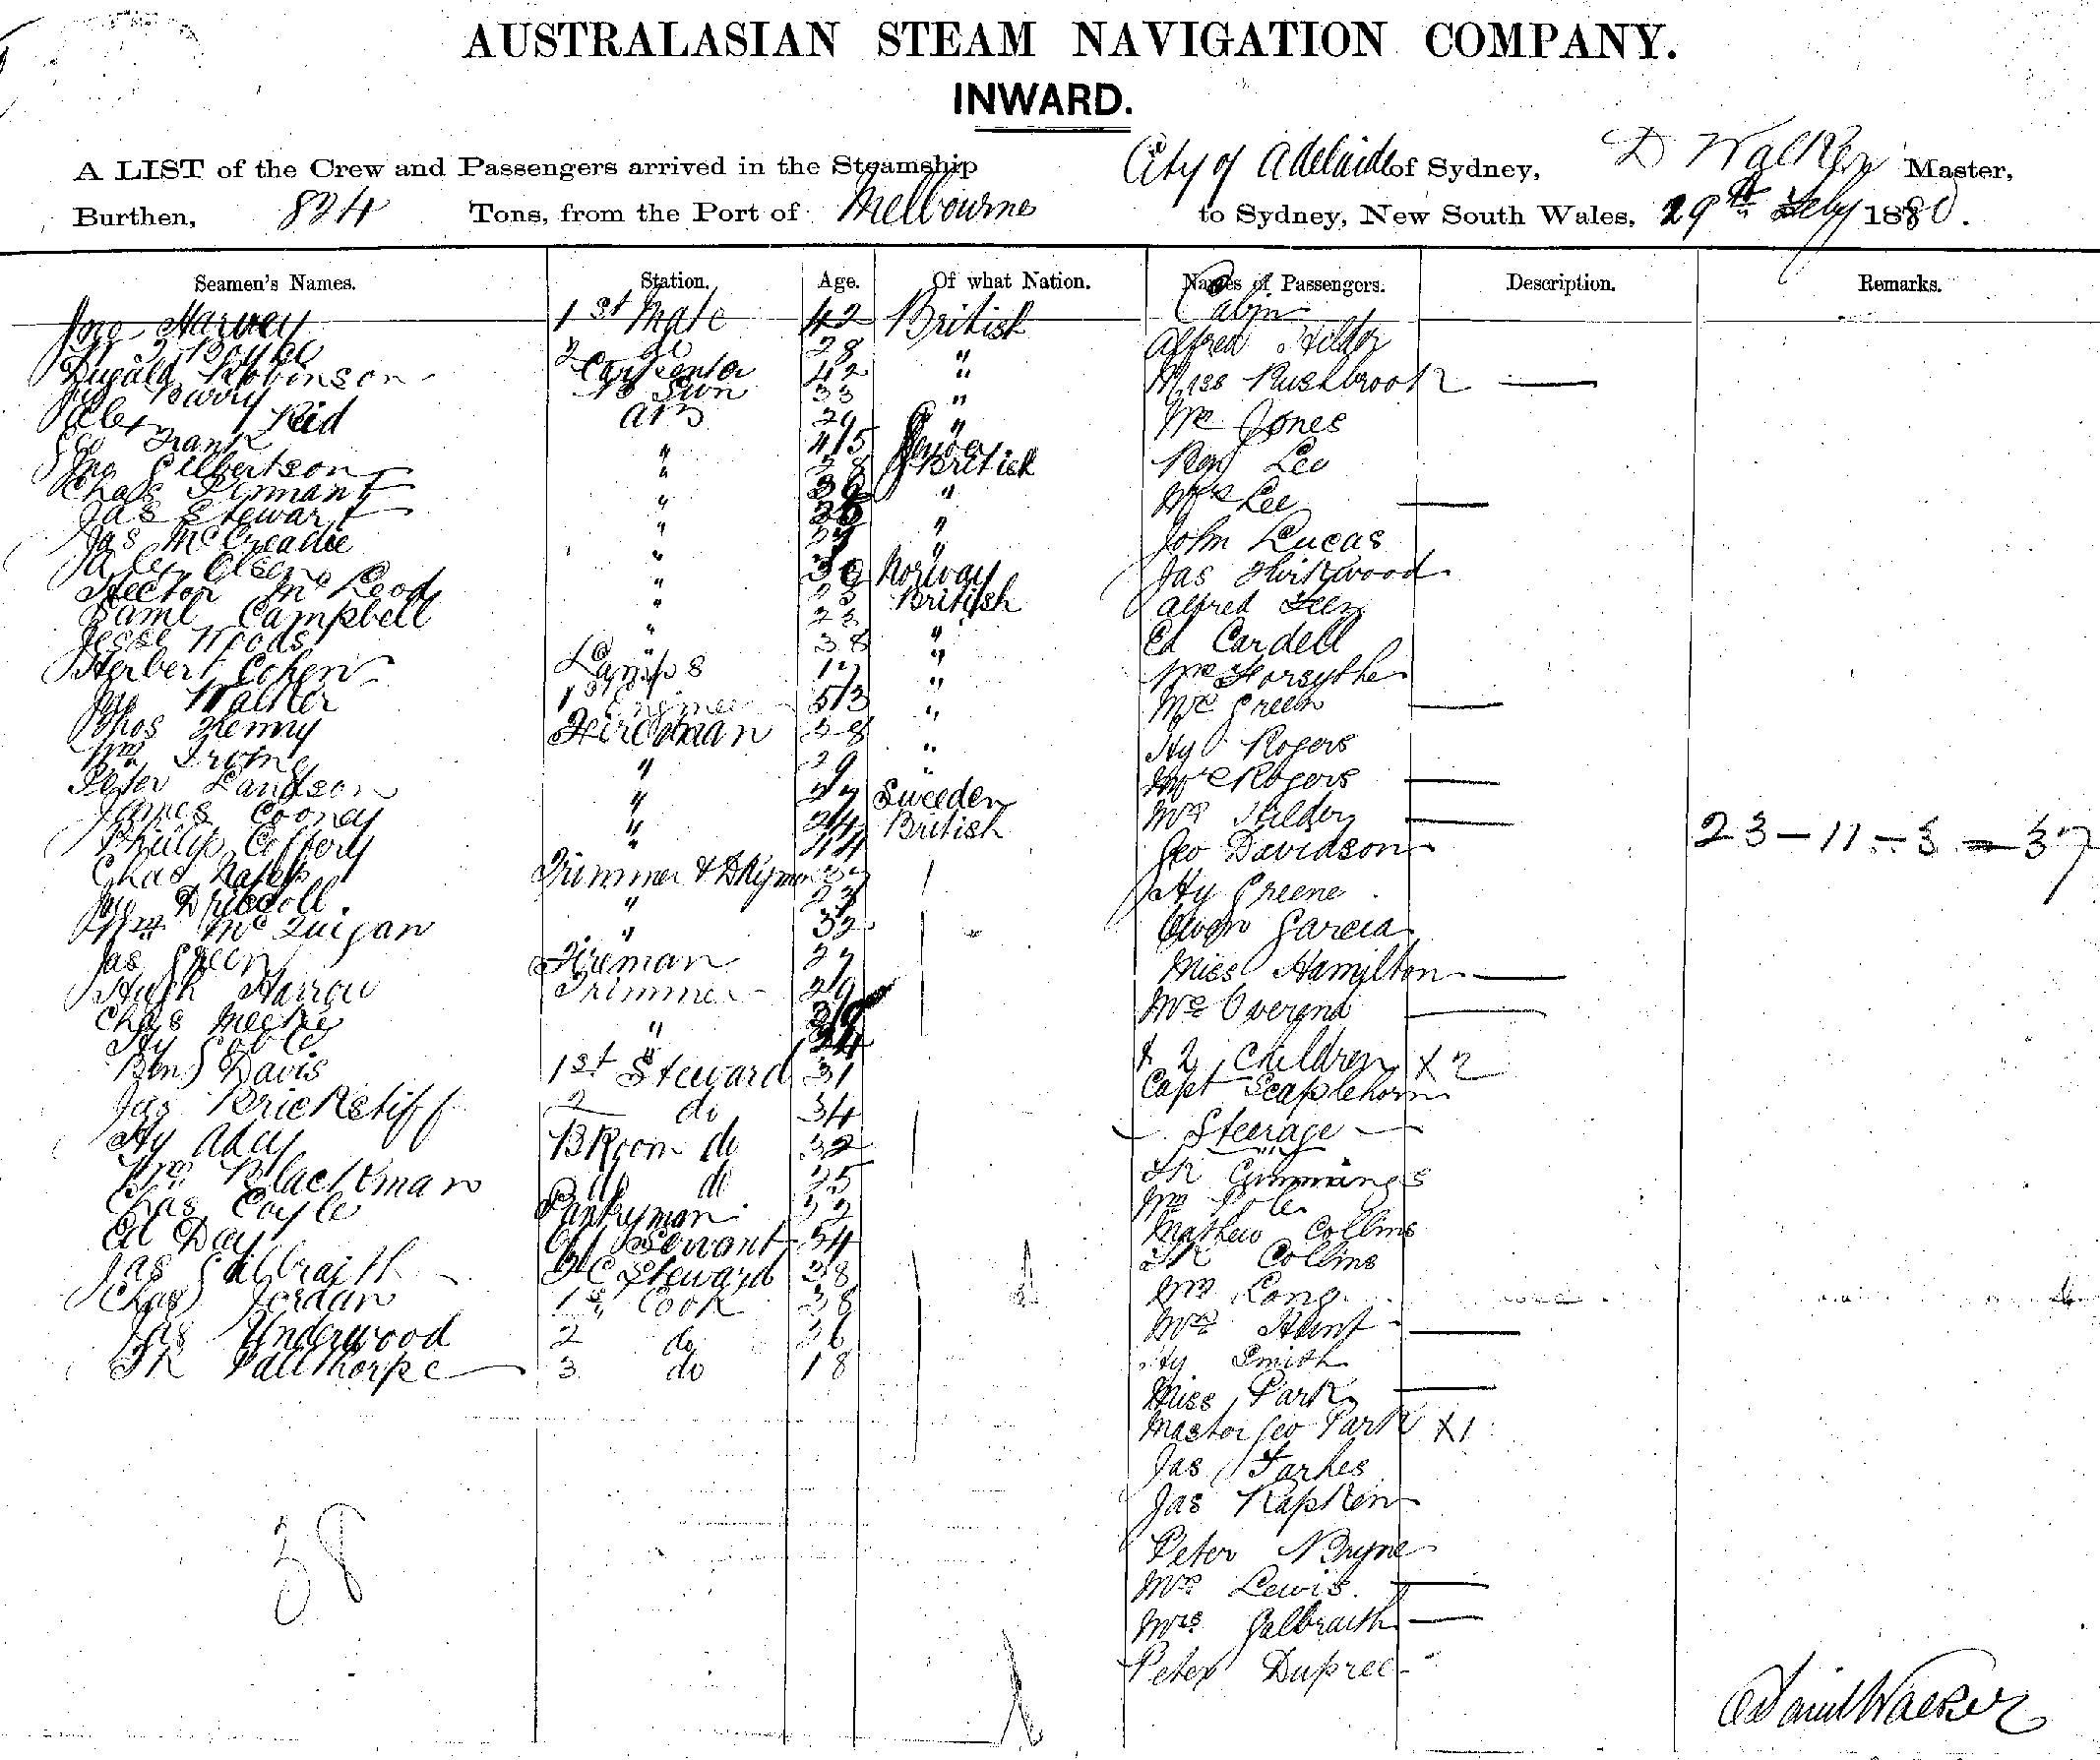 AUSTRALASIAN STEAM NAVIGATION COMPANY.
INWARD.
A LIST of the Crew and Passengers arrived in the Steamship City of Adelaide of Sydney, D Walker Master,
Burthen, 824 Tons, from the Port of Melbourne to Sydney, New South Wales, 29th Feby 1880.
Seamen's Names. Station. Age. Of what Nation. Names of Passengers. Description. Remarks.
Jno 1st Mate 42 British Cabin
2 do 28 " Alfred Hilder
Dugald Robinson Carpenter 42 " Miss Rushbrook
Jno Barry 33 "
Alex Reid AB 29 " Mr Jones
Geo Frank " 45
Jno Gilbertson " 28 British Revd Lee
Chas Pinnant " "
Jas Stewart " Mrs Lee
Jas McCreadie " " John Lucas
Olsen " 30 Norway Jas Thirkwood
Hector McLeod " 23 British Alfred
Saml Campbell " 23
Jesse Woods " 38 " Ed Cardell
Herbert Cohen Lamps 17 " Mr Forsythe
Jno Walker 1st Engineer 53 " Mrs Green
Thos Kenny Fireman 38 " Hy Rogers
Wm " 29 " Mrs Rogers
Peter Landson " 27 Sweeden Mrs Hilder
James Cooney " 24 British Geo Davidson
Philip " 44
Chas Trimmer & Hy Greene
Jno Driscoll " 23
Wm McGuigan " 32 Owen Garcia
Jas Green Fireman 27 Miss Hamilton
Hugh Harrow Trimmer 29 Mrs Overend
Chas "
Hy " 24 & 2 Children X 2
Benj Davis 1st Steward 31 Capt Scaplehorn
Jas Brickstiff 2 do 34 Steerage
Hy Aday B Room do 32
Wm Blackman do 25 Fk Gimmings
Chas Coyle Pantryman 32 Wm Pole
Ed Day Servant 34 Mathew Collins
Jas Galbraith Steward 38 Fk Collins
Chas Jordan 1st Cook 38 Wm Long
Jas Underwood 2 do 26 Mrs Hunt
Fk Pallthorpe 3 do 18 Hy Smith
Miss Park
Master Geo Park X1
Jas Farhes
Jas Rapken
Peter Bryne
Mrs Lewis
Mrs Galbraith
Peter Dupree
23 - 11 - 3 - 37
38
David Walker